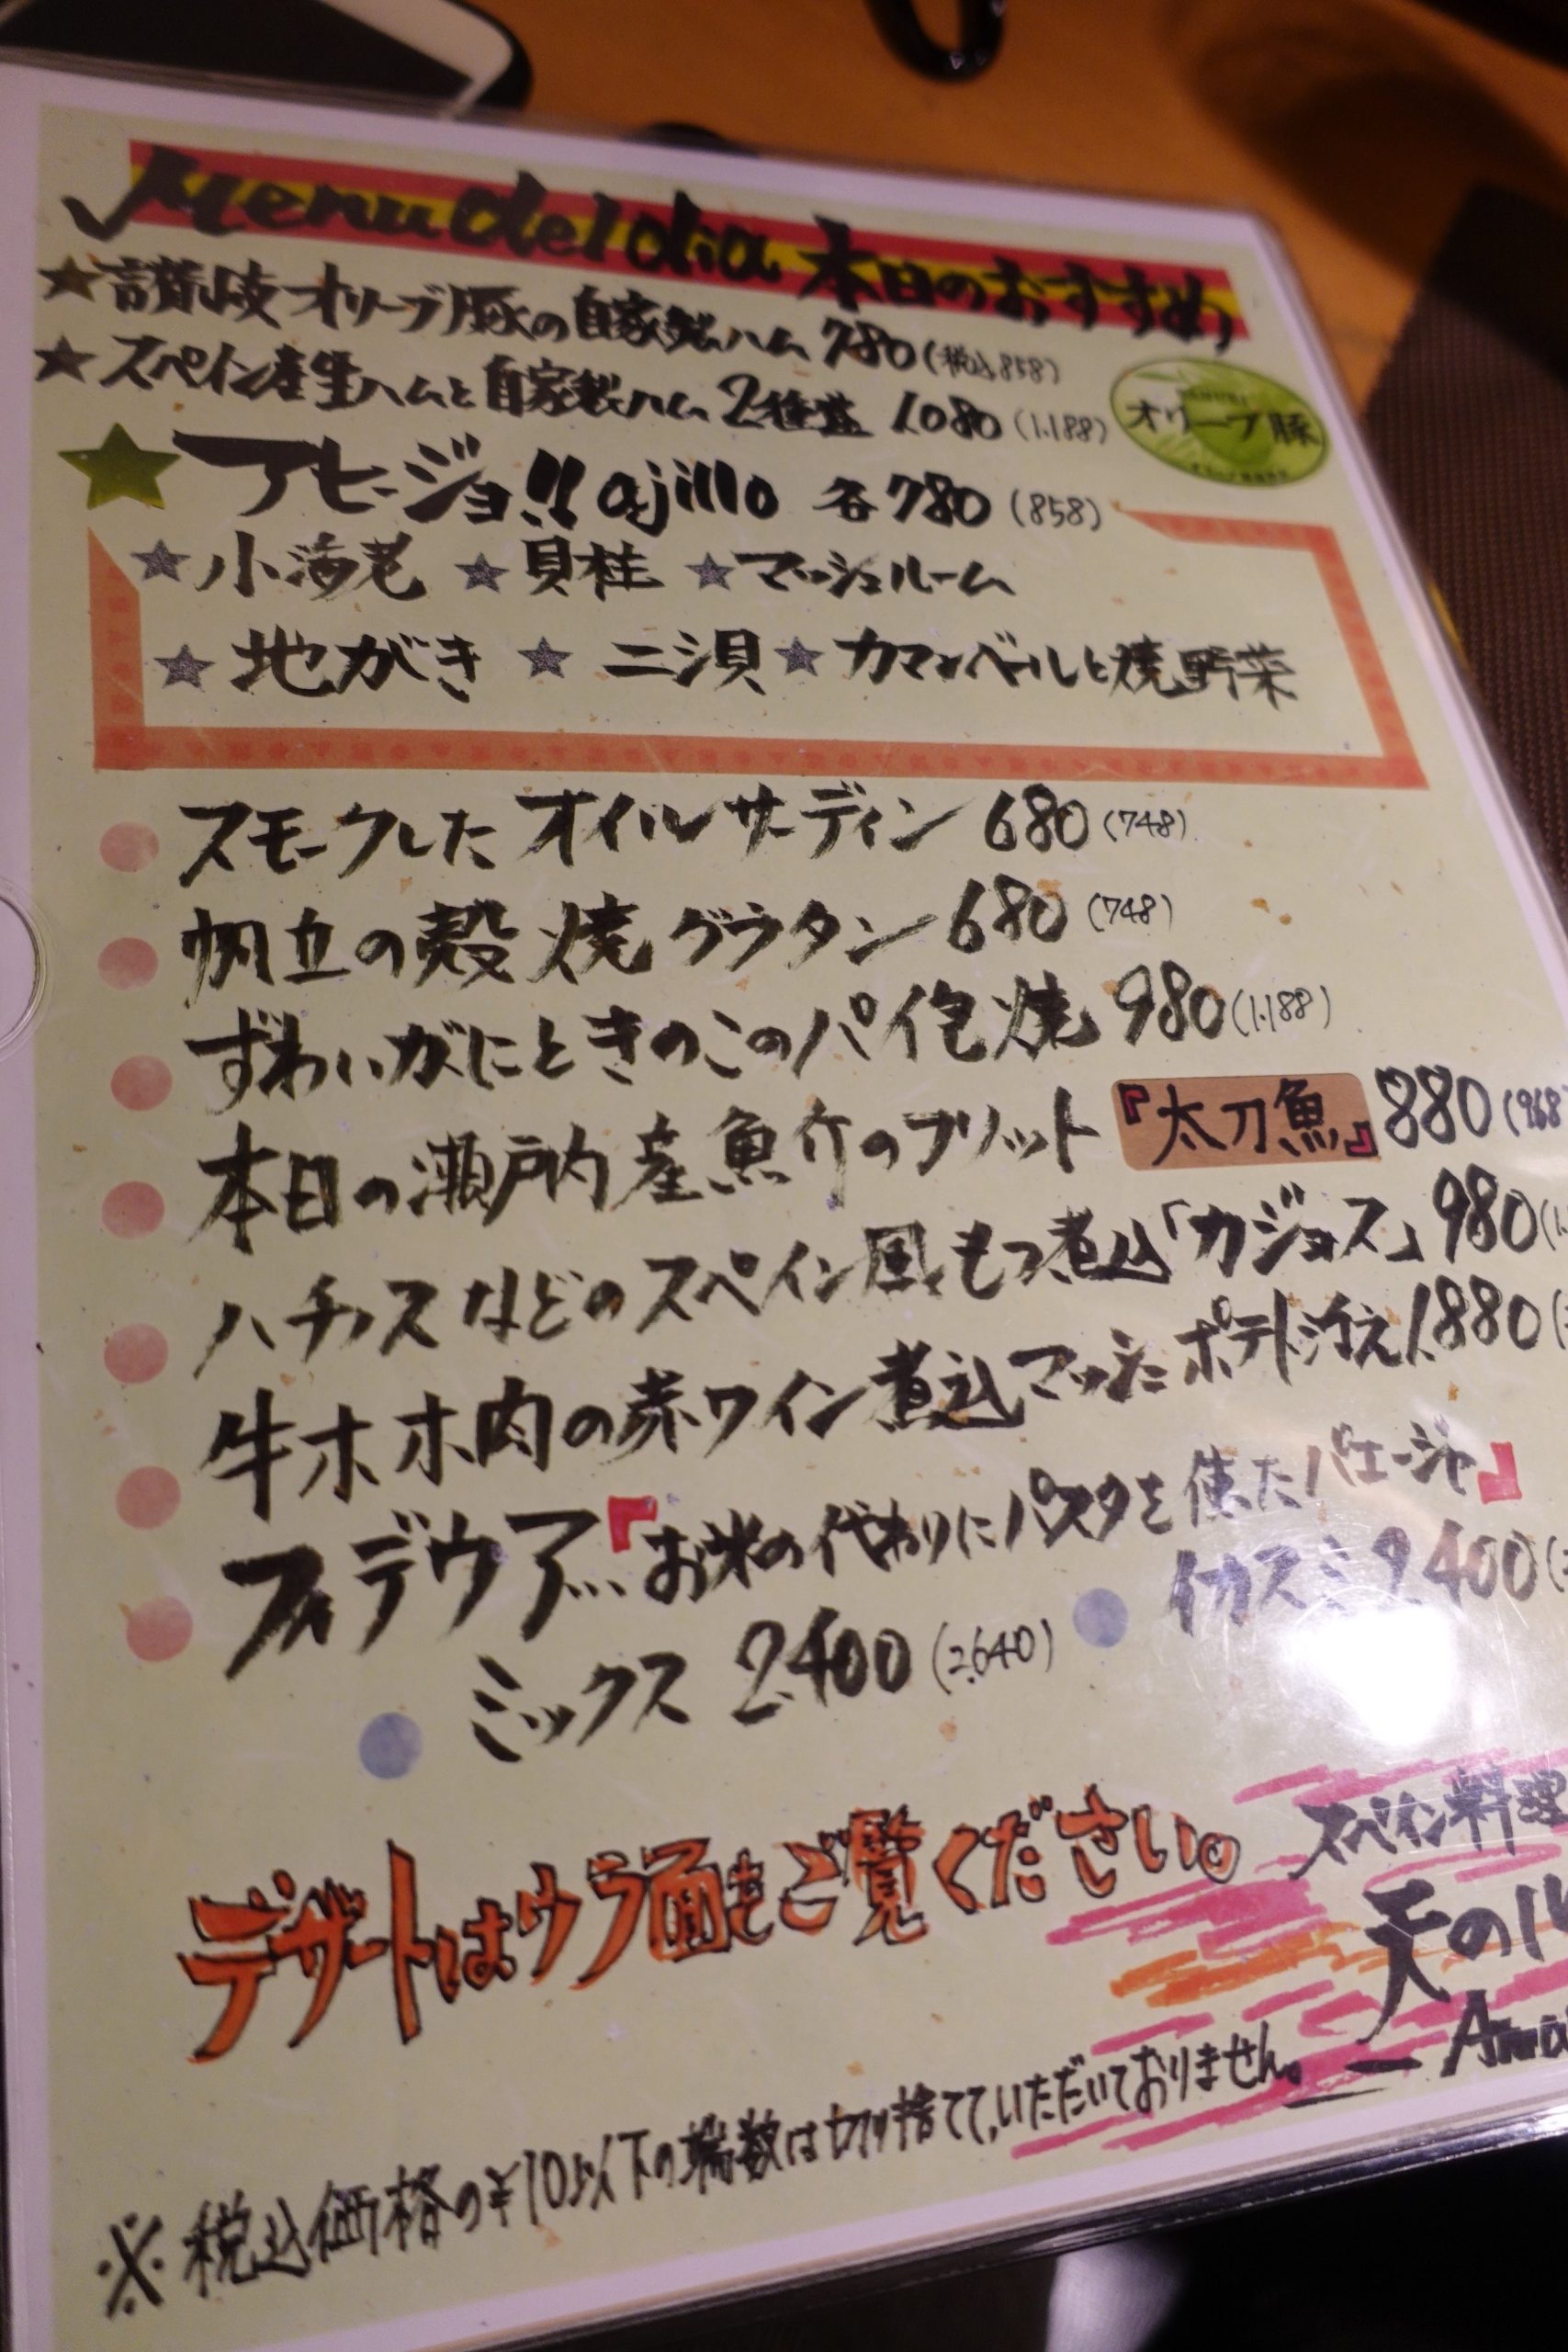 Menu del dia 本日のおすすめ
★讃岐オリーブ豚の自家製ハム 780(税込858)
★スペイン産生ハムと自家製ハム2種盛 1.080(1.188)
オリーブ豚
★アヒージョ!! ajillo 各780(858)
★小海老 ★貝柱 ★マッシュルーム
★地がき ★ニシ貝 ★カマンベールと焼野菜
スモークした オイルサーディン 680(748)
帆立の殻焼グラタン 680(748)
ずわいがにときのこのパイ包焼 980(1.188)
本日の瀬戸内産魚介のフリット『太刀魚』880(968
ハチノスなどのスペイン風もつ煮込「カジョス」980
牛ホホ肉の赤ワイン煮込マッシュポテト添え1.880
フィデウア…『お米の代わりにパスタを使ったパエージャ』
ミックス 2.400(2.640)
イカスミ 2.400
デザートはウラ面もご覧ください。
スペイン料理
天の
※税込価格の¥10以下の端数は切り捨てて、いただいておりません。